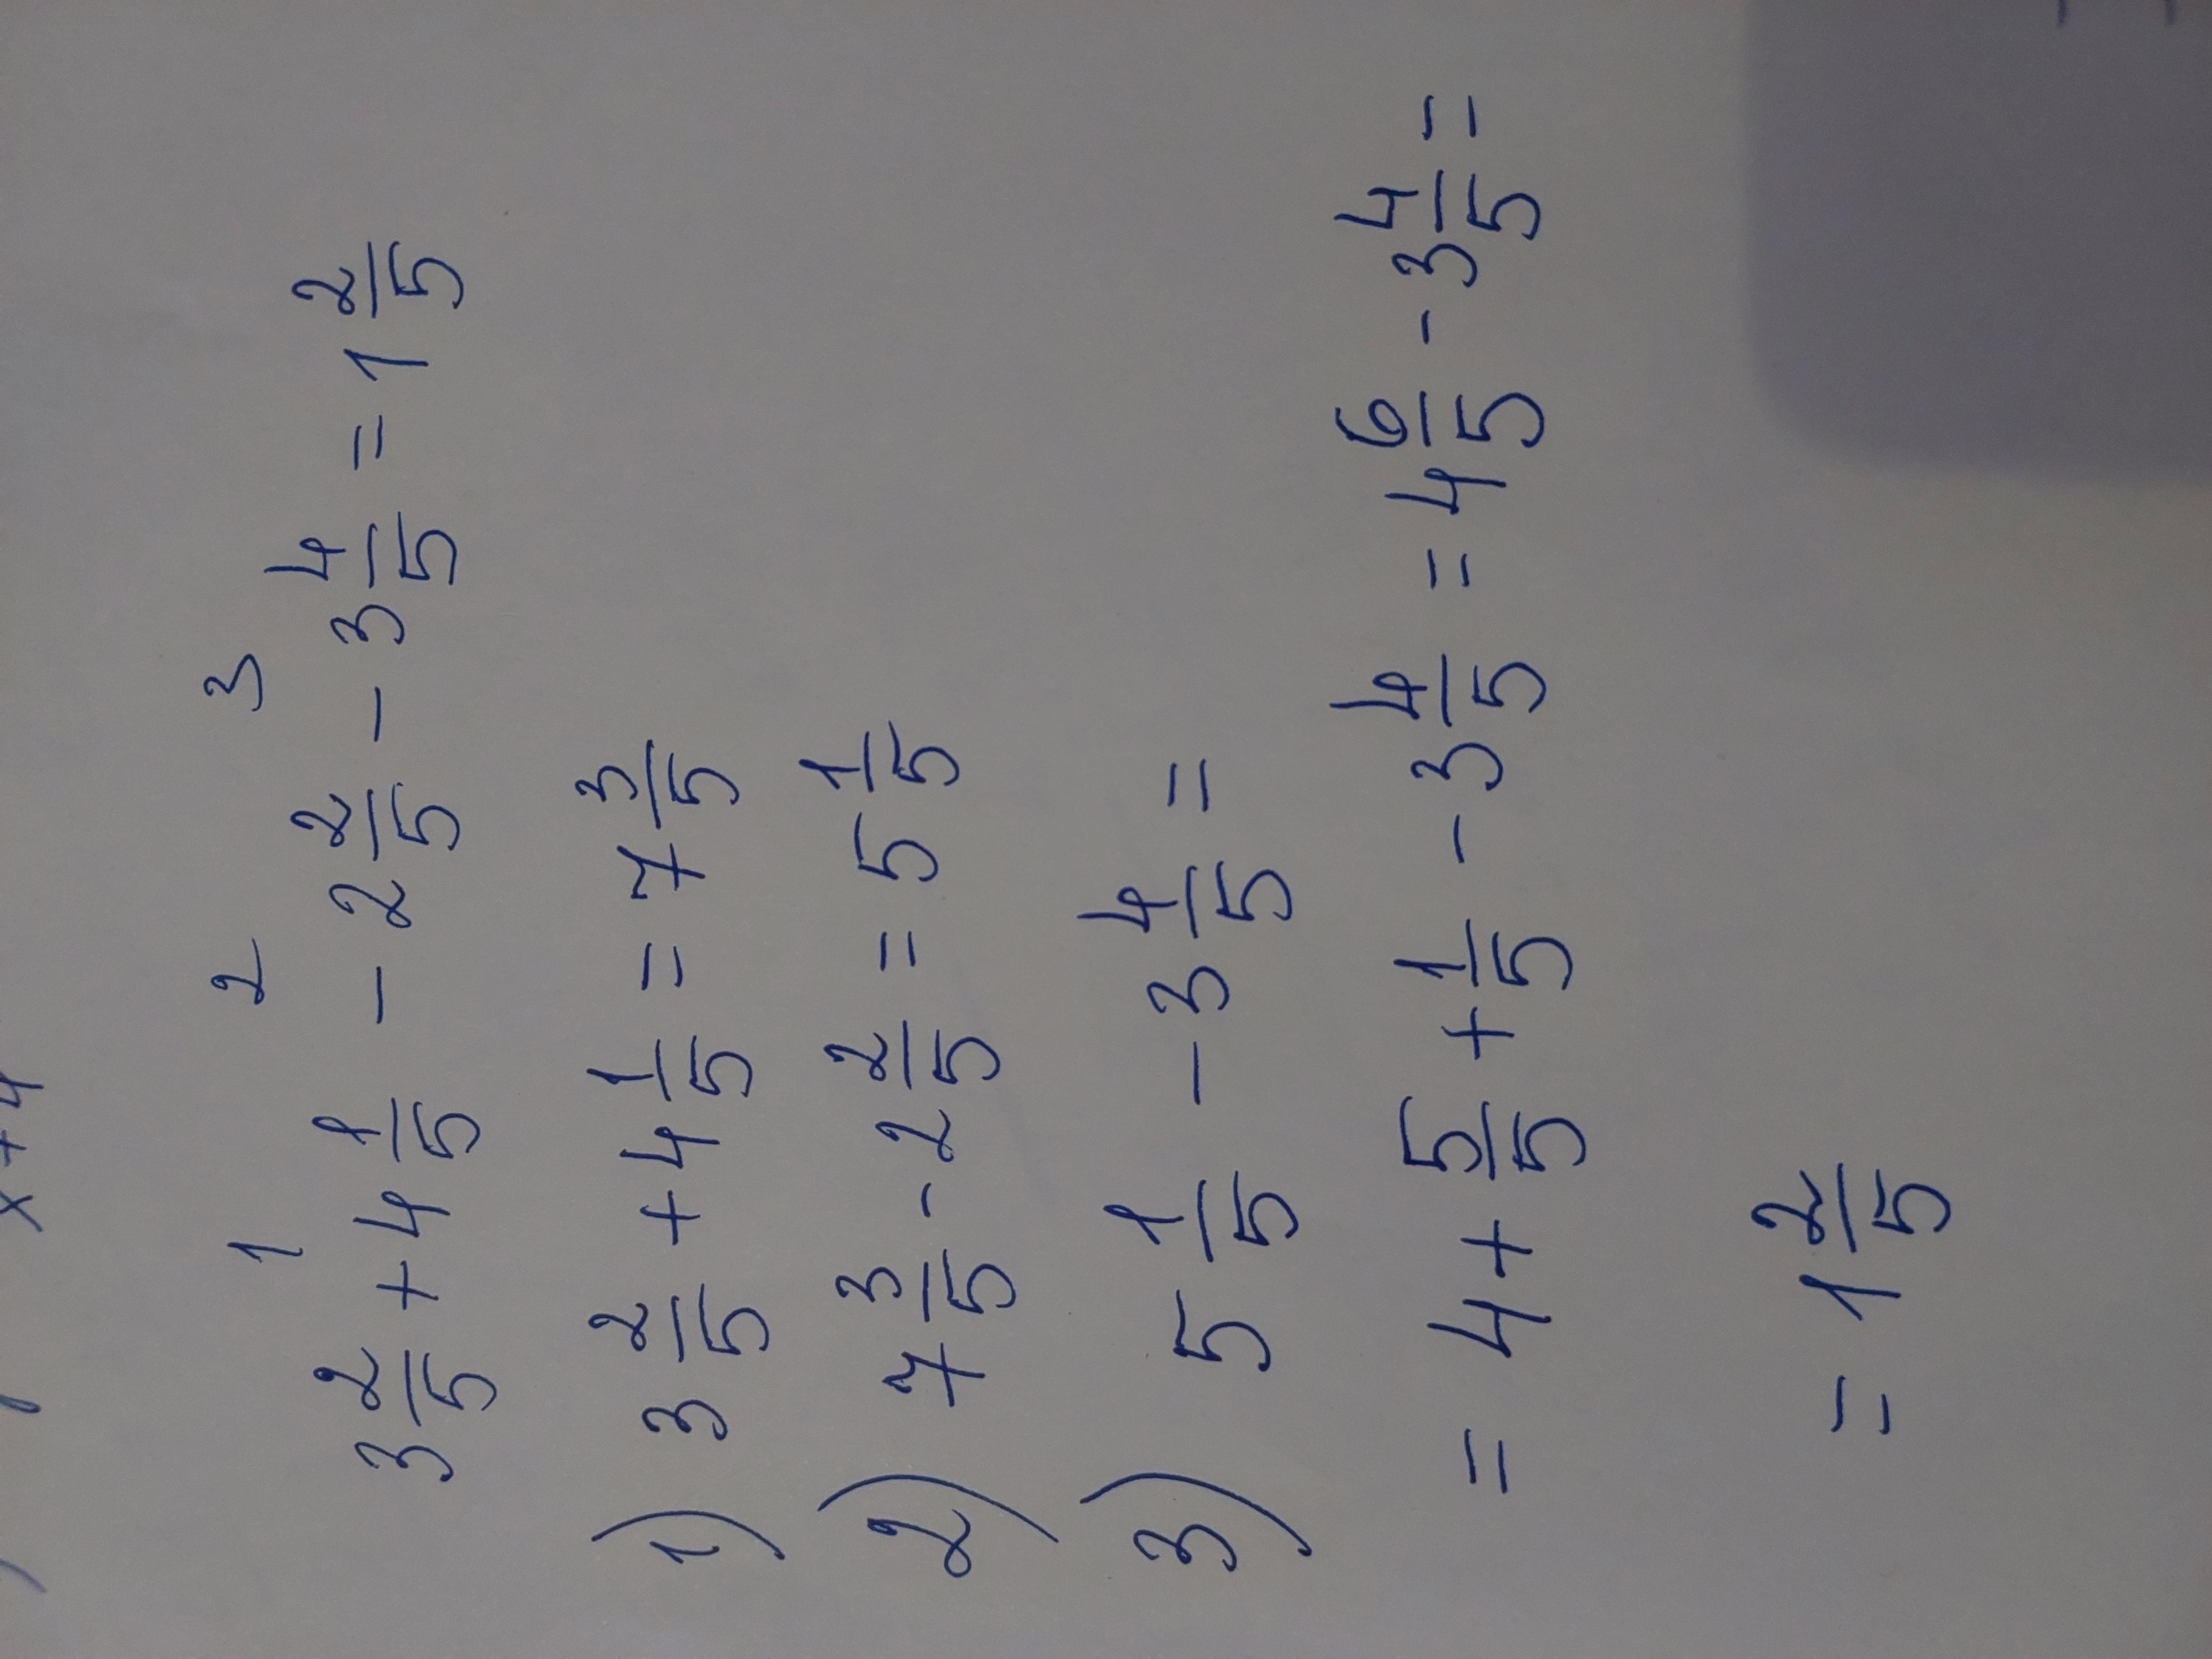 x + 4
1 2 3
3 2/5 + 4 1/5 - 2 2/5 - 3 4/5 = 1 2/5
1) 3 2/5 + 4 1/5 = 7 3/5
2) 7 3/5 - 2 2/5 = 5 1/5
3) 5 1/5 - 3 4/5 =
= 4 + 5/5 + 1/5 - 3 4/5 = 4 6/5 - 3 4/5 =
= 1 2/5